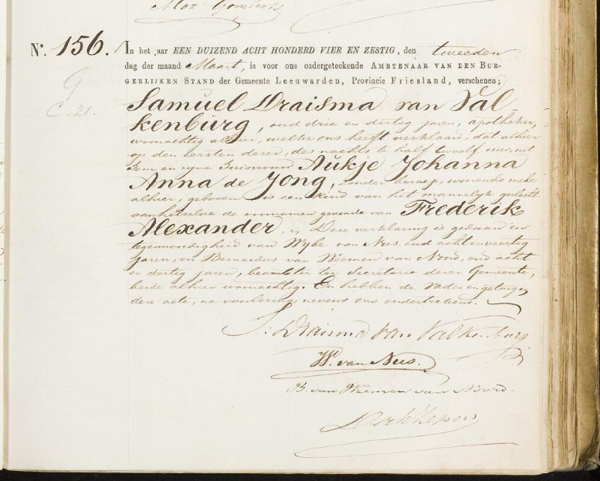 N.º 156.
In het jaar EEN DUIZEND ACHT HONDERD VIER EN ZESTIG, den tweeden
dag der maand Maart, is voor ons ondergeteekende AMBTENAAR VAN DEN BUR-
GERLIJKEN STAND der Gemeente Leeuwarden, Provincie Friesland, verschenen;
Samuel Draisma van Val
kenburg, oud drie en dertig jaren, apotheker,
woonachtig alhier, welke ons heeft verklaard, dat alhier
op den eersten dezer, des nachts te half twaalf ure, uit
hem en zijne huisvrouw Aukje Johanna
Anna de Jong, zonder beroep, wonende mede
alhier, geboren is een kind van het mannelijk geslacht
aan hetwelk de voornamen gegeven van Frederik
Alexander. Deze verklaring is gedaan in
tegenwoordigheid van Wybe van Nus, oud acht en veertig
jaren, en Bernardus van Wiemen van Noord, oud acht
en dertig jaren, beambten ter Secretarie dezer Gemeente,
beide alhier woonachtig. En hebben de
deze acte, na voorlezing, nevens ons onderteekend.
S: Draisma van Valkenburg
W. van Nus.
B. van Wiemen van Noord.